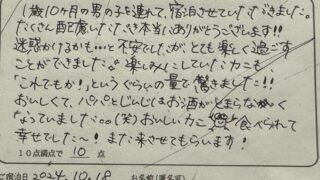 1歳10ヶ月の男の子を連れて、宿泊させていただきました。
たくさん配慮いただき本当にありがとうございます!!
迷惑かけるかも…と不安でしたが、とても楽しく過ごす
ことができました。楽しみにしていたカニも
「これでもか!」というぐらいの量で驚きました!!
おいしくて、パパとじぃじはお酒がとまらなく
なっていました。。(笑) おいしいカニ 食べられて
幸せでした〜! また来させてもらいます!
10点満点で 10 点
ご宿泊日 2024.10.18 お名前(匿名可)